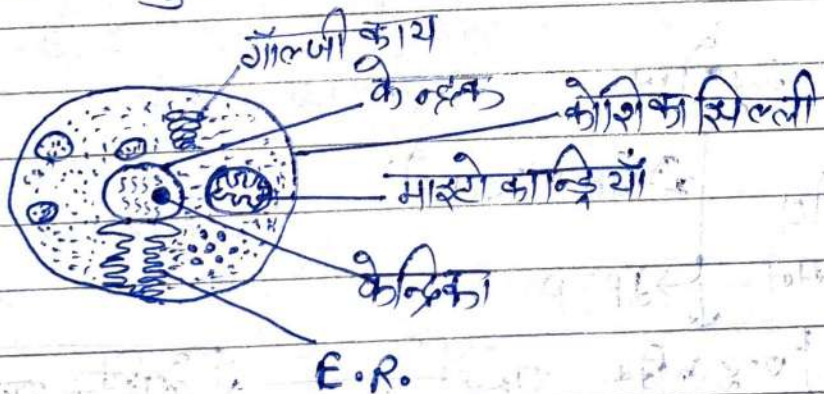 गॉल्जी काय
केन्द्रक
कोशिका झिल्ली
माइटो कान्ड्रियाँ
केन्द्रिका
E.R.